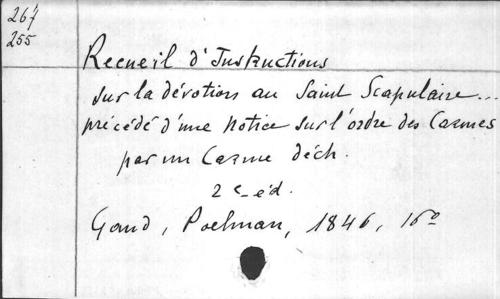 267
255
Recueil d'Instructions
sur la dévotion au Saint Scapulaire...
précédé d'une Notice sur l'ordre des Carmes
par un Carme déch.
2e éd.
Gand, Poelman, 1846, 16o